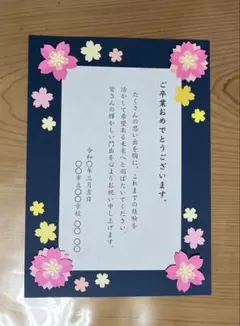 ご卒業おめでとうございます。
たくさんの思い出を胸に、これまでの経験を
活かして希望ある未来へと羽ばたいてください。
皆さんの輝かしい門出を心よりお祝い申し上げます。
令和〇年三月吉日
〇〇市立〇〇学校 〇〇